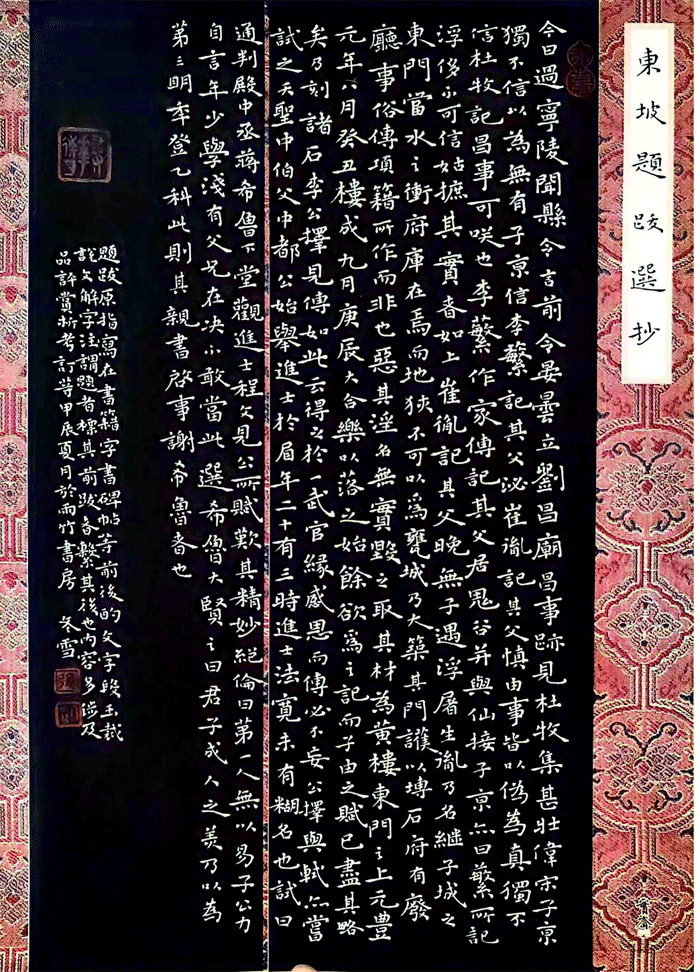 東坡題跋選抄
今日過寧陵聞縣令言前令晏曇立劉昌廟昌事跡見杜牧集甚壯偉宋子京
獨不信以為無有子京信李蘩記其父泌崔胤記其父慎由事皆以偽為真獨不
信杜牧記昌事可咲也李蘩作家傳記其父居鬼谷并與仙接子京亦曰蘩所記
浮侈不可信姑摭其實者如上崔胤記其父晚無子遇浮屠生胤乃名繼子城之
東門當水之衝府庫在焉而地狹不可以為甕城乃大築其門護以塼石府有廢
廳事俗傳項籍所作而非也惡其淫名無實毀之取其材為黃樓東門之上元豊
元年八月癸丑樓成九月庚辰大合樂以落之始餘欲為之記而子由之賦已盡其略
矣乃刻諸石李公擇見傳如此云得之於一武官緣感恩而傳必不妄公擇與軾亦當
試之天聖中伯父中都公始舉進士於眉年二十有三時進士法寬未有糊名也試日
通判殿中丞蔣希魯下堂觀進士程文見公所賦歎其精妙絕倫曰第一人無以易子公力
自言年少學淺有父兄在決不敢當此選希魯大賢之曰君子成人之美乃以為
第三明年登乙科此則其親書啟事謝希魯者也
題跋原指寫在書籍字畫碑帖等前後的文字段玉裁
說文解字注謂題者標其前跋者繫其後也內容多涉及
品評賞析考訂等甲辰夏月於雨竹書房 冬雪